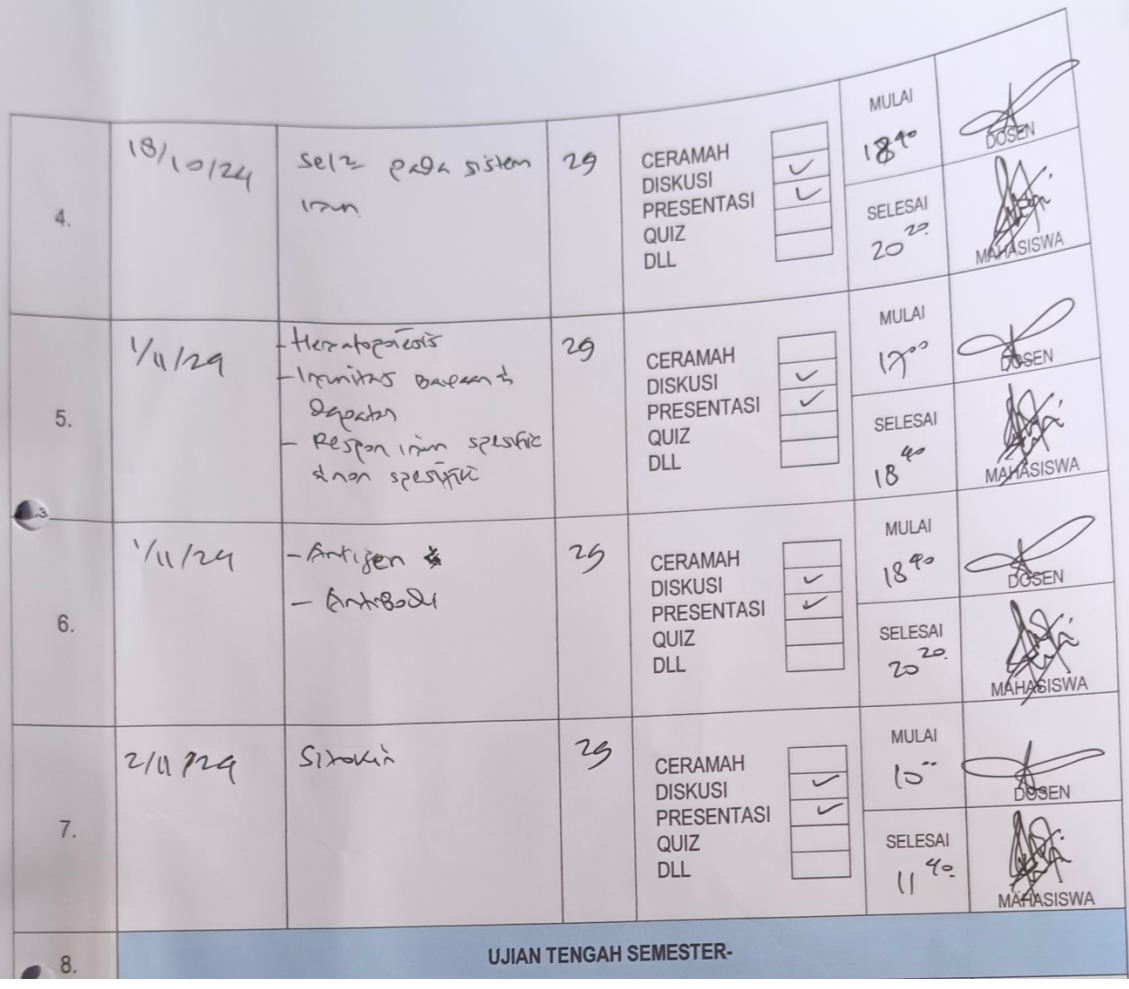 4.
18/10/24
Sel2 pada sistem
imun
29
CERAMAH
DISKUSI
PRESENTASI
QUIZ
DLL
MULAI
18 40
SELESAI
20 20
DOSEN
MAHASISWA
5.
1/11/24
- Hematopoiesis
- Imunitas Bawaan &
Dapatan
- Respon imun spesific
& non spesific
29
CERAMAH
DISKUSI
PRESENTASI
QUIZ
DLL
MULAI
17 00
SELESAI
18 40
DOSEN
MAHASISWA
3
6.
1/11/24
- Antigen &
- Antibodi
29
CERAMAH
DISKUSI
PRESENTASI
QUIZ
DLL
MULAI
18 40
SELESAI
20 20
DOSEN
MAHASISWA
7.
2/11/24
Sitokin
29
CERAMAH
DISKUSI
PRESENTASI
QUIZ
DLL
MULAI
10 00
SELESAI
11 40
DOSEN
MAHASISWA
8.
UJIAN TENGAH SEMESTER-